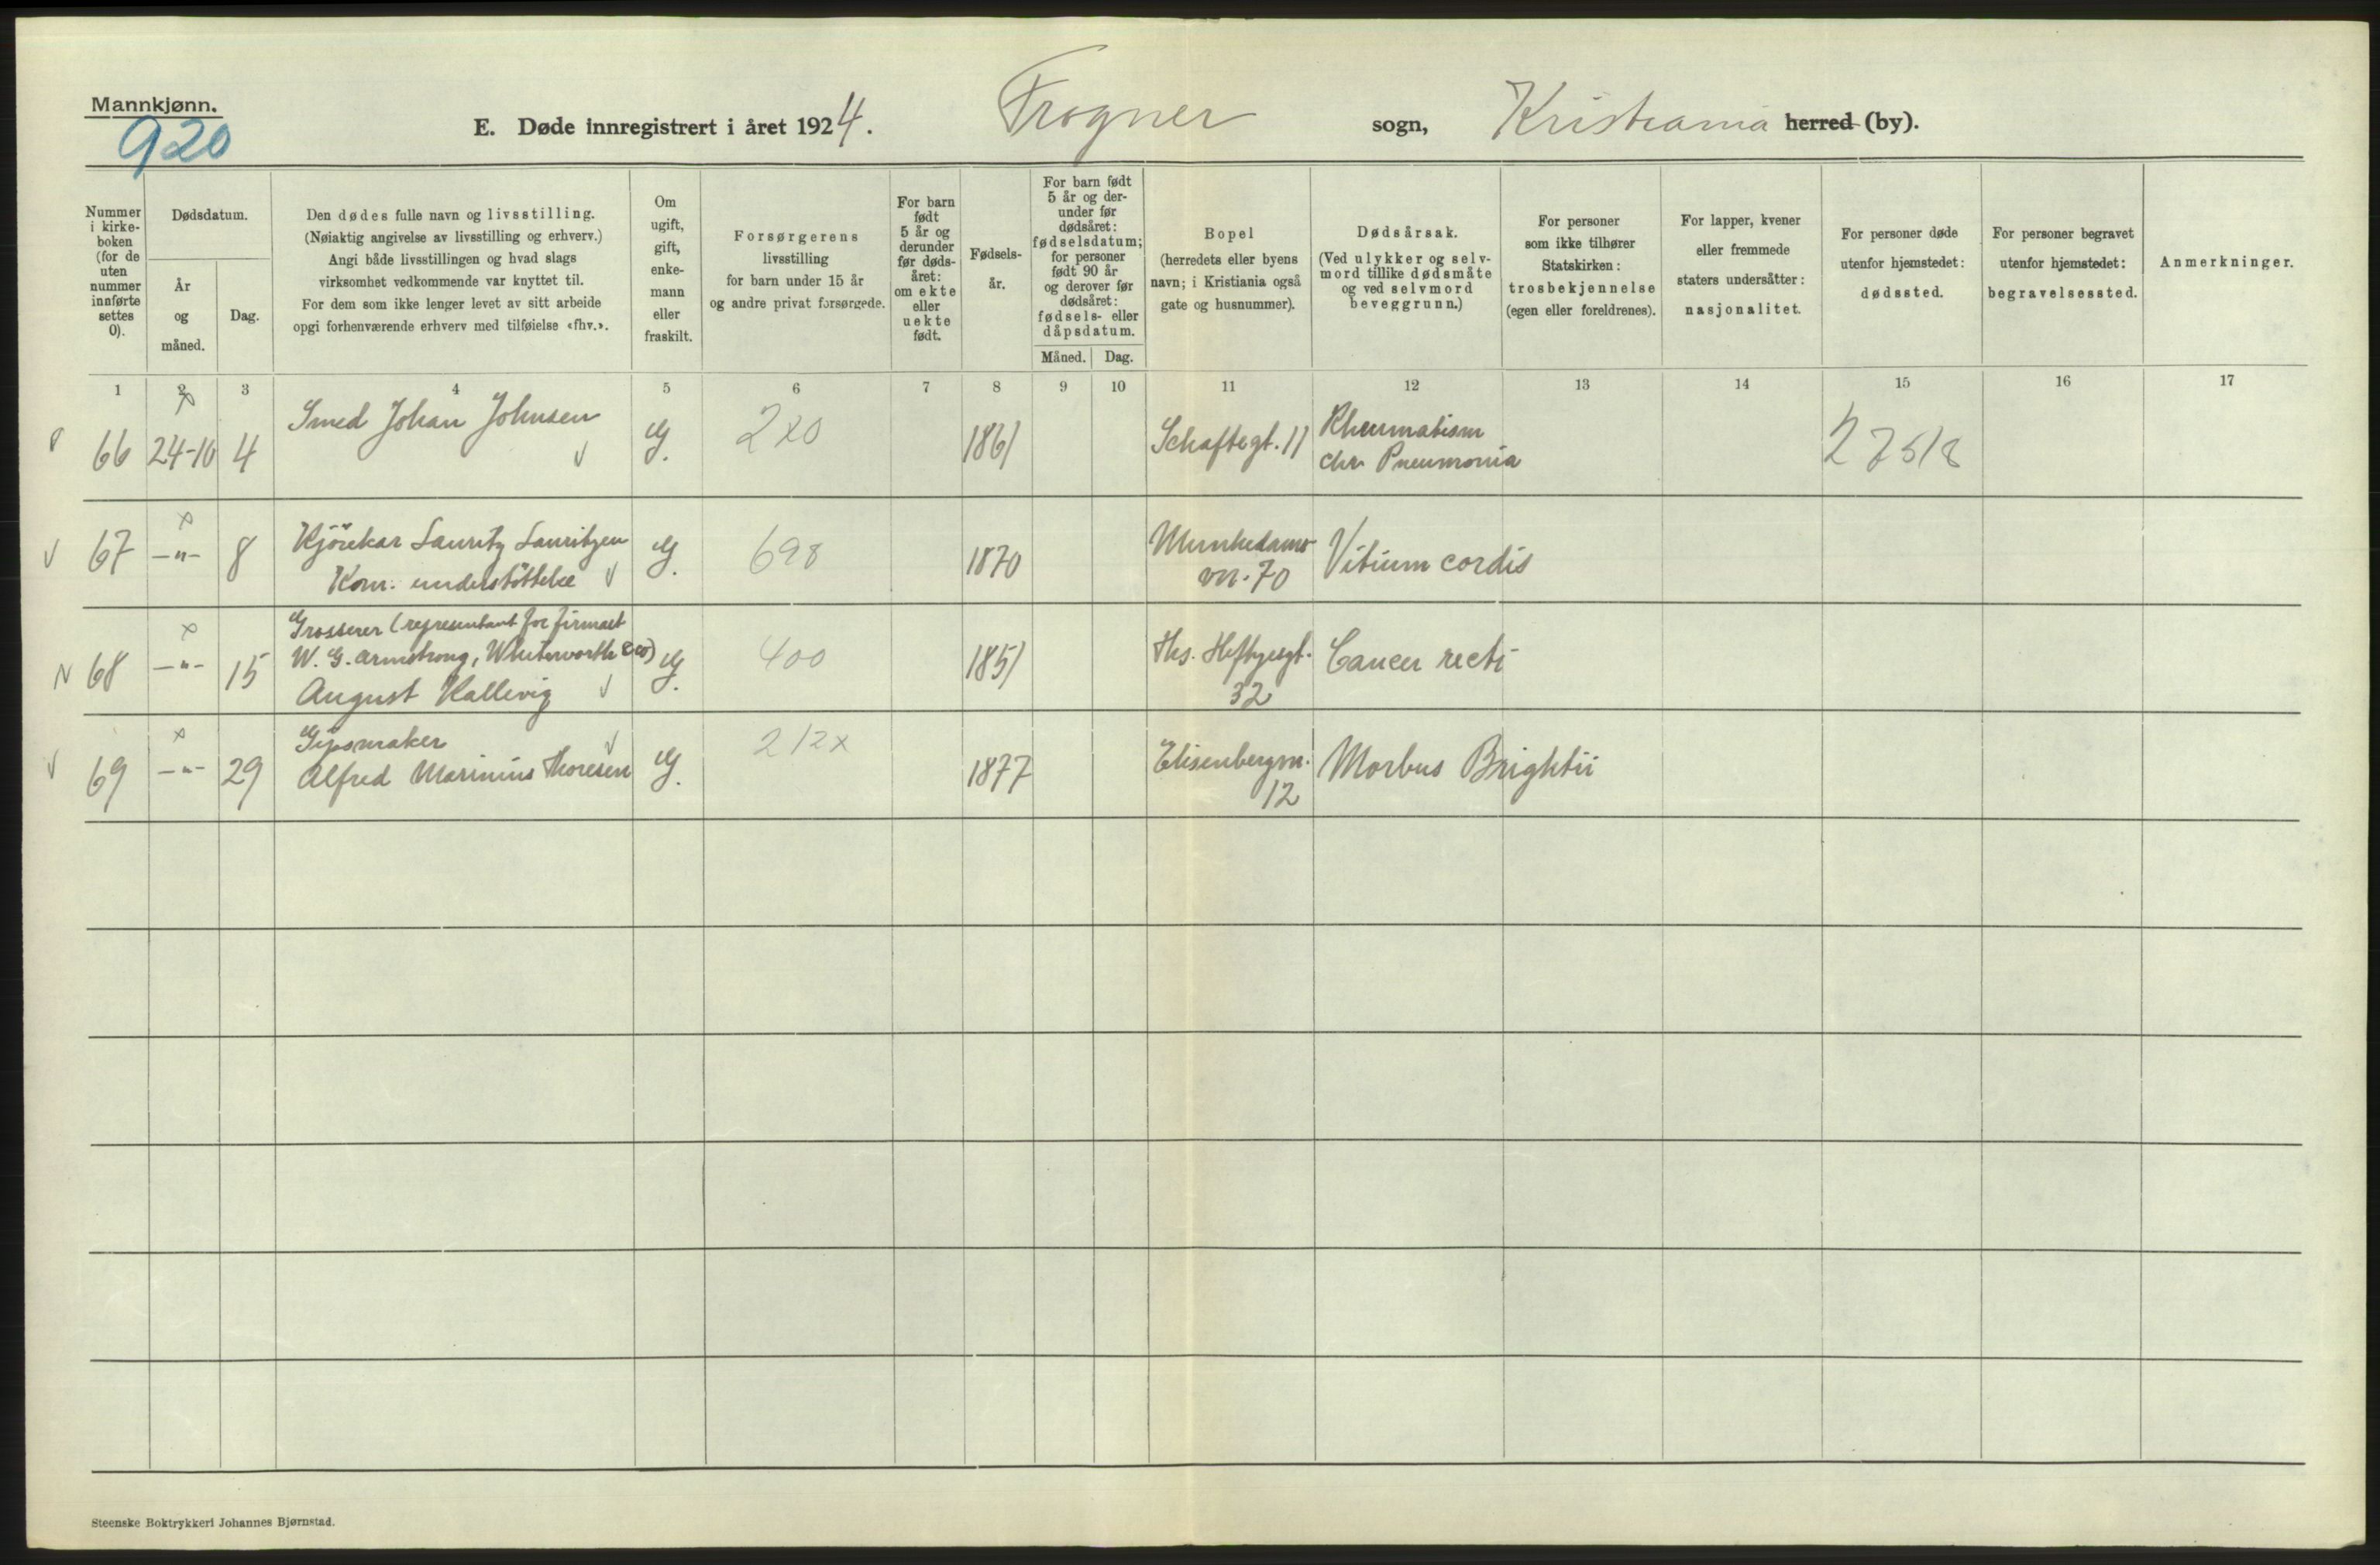 Mannkjønn.
920
E. Døde innregistrert i året 1924. Frogner sogn, Kristiania herred (by).
Nummer i kirke-boken (for de uten nummer innførte settes 0).
Dødsdatum.
År og måned.
Dag.
Den dødes fulle navn og livsstilling.
(Nøiaktig angivelse av livsstilling og erhverv.)
Angi både livsstillingen og hvad slags
virksomhet vedkommende var knyttet til.
For dem som ikke lenger levet av sitt arbeide
opgi forhenværende erhverv med tilføielse «fhv.».
Om ugift, gift, enke-mann eller fraskilt.
Forsørgerens
livsstilling
for barn under 15 år
og andre privat forsørgede.
For barn født 5 år og derunder før døds-året: om ekte eller uekte født.
Fødsels-år.
For barn født 5 år og der-under før dødsåret: fødselsdatum; for personer født 90 år og derover før dødsåret: fødsels- eller dåpsdatum.
Måned. Dag.
Bopel
(herredets eller byens
navn; i Kristiania også
gate og husnummer).
Dødsårsak.
(Ved ulykker og selv-
mord tillike dødsmåte
og ved selvmord
beveggrunn.)
For personer
som ikke tilhører
Statskirken:
trosbekjennelse
(egen eller foreldrenes).
For lapper, kvener
eller fremmede
staters undersåtter:
nasjonalitet.
For personer døde
utenfor hjemstedet:
dødssted.
For personer begravet
utenfor hjemstedet:
begravelsessted.
Anmerkninger.
1 2 3 4 5 6 7 8 9 10 11 12 13 14 15 16 17
66 24-10 4 Smed Johan Johnsen G. 2x0 1861 Schaftegt. 11 Rheumatism
chr. Pneumonia
67 -"- 8 Kjörekar Lauritz Lauritzen G. 698 1870 Munkedams- Vitium cordis
Kom. understöttelse vn. 70
Grosserer (representant for firmaet
68 -"- 15 W. G. Armstrong, Whitworth & Co) G. 400 1851 Ths. Heftyesgt. Cancer recti
August Kallevig 32
Gipsmaker 212x
69 -"- 29 Alfred Marinius Thoresen G. 1877 Elisenbergvn. Morbus Brightii
12
Steenske Boktrykkeri Johannes Bjørnstad.